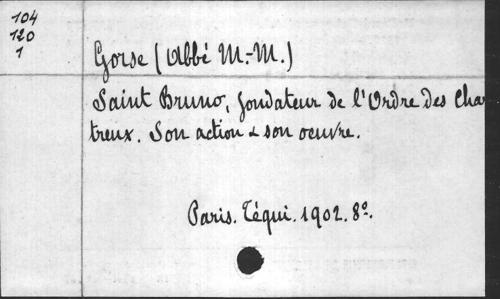 104
120
1
Gorse (Abbé M.-M.)
Saint Bruno, fondateur de l'Ordre des Char
treux. Son action & son oeuvre.
Paris. Téqui. 1902. 8º.